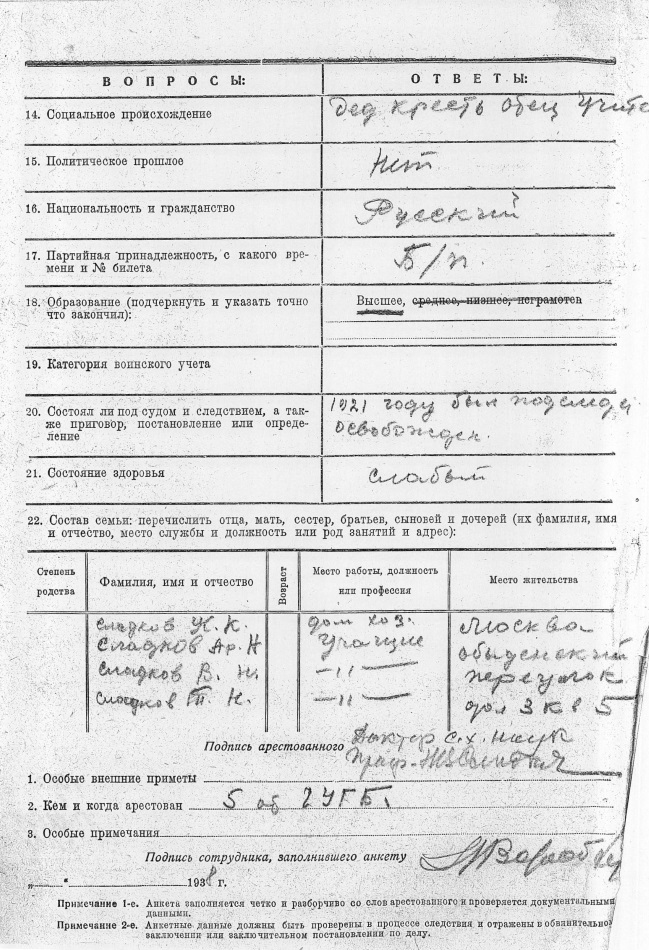 ВОПРОСЫ: ОТВЕТЫ:
14. Социальное происхождение Дед кресть отец учите
15. Политическое прошлое Нет
16. Национальность и гражданство Русский
17. Партийная принадлежность, с какого вре-
мени и № билета Б/п.
18. Образование (подчеркнуть и указать точно Высшее, среднее, низшее, неграмотен
что закончил):
19. Категория воинского учета
20. Состоял ли под судом и следствием, а так- 1921 году был под след
же приговор, постановление или опреде- освобожден.
ление
21. Состояние здоровья слабый
22. Состав семьи: перечислить отца, мать, сестер, братьев, сыновей и дочерей (их фамилия, имя
и отчество, место службы и должность или род занятий и адрес):
Степень
родства
Фамилия, имя и отчество
Возраст
Место работы, должность
или профессия
Место жительства
Сладков К. дом хоз. Москва
Сладков Ар. Н Учащие обыденский
Сладков В. Н. —〃— переулок
Сладков Т. Н. —〃— дом 3 кв 5
Подпись арестованного Доктор с.х. наук
Проф.
1. Особые внешние приметы
2. Кем и когда арестован 5 от ГУГБ.
3. Особые примечания
Подпись сотрудника, заполнившего анкету
„ “ 1938 г.
Примечание 1-е. Анкета заполняется четко и разборчиво со слов арестованного и проверяется документальными
данными.
Примечание 2-е. Анкетные данные должны быть проверены в процессе следствия и отражены в обвинительно
заключении или заключительном постановлении по делу.